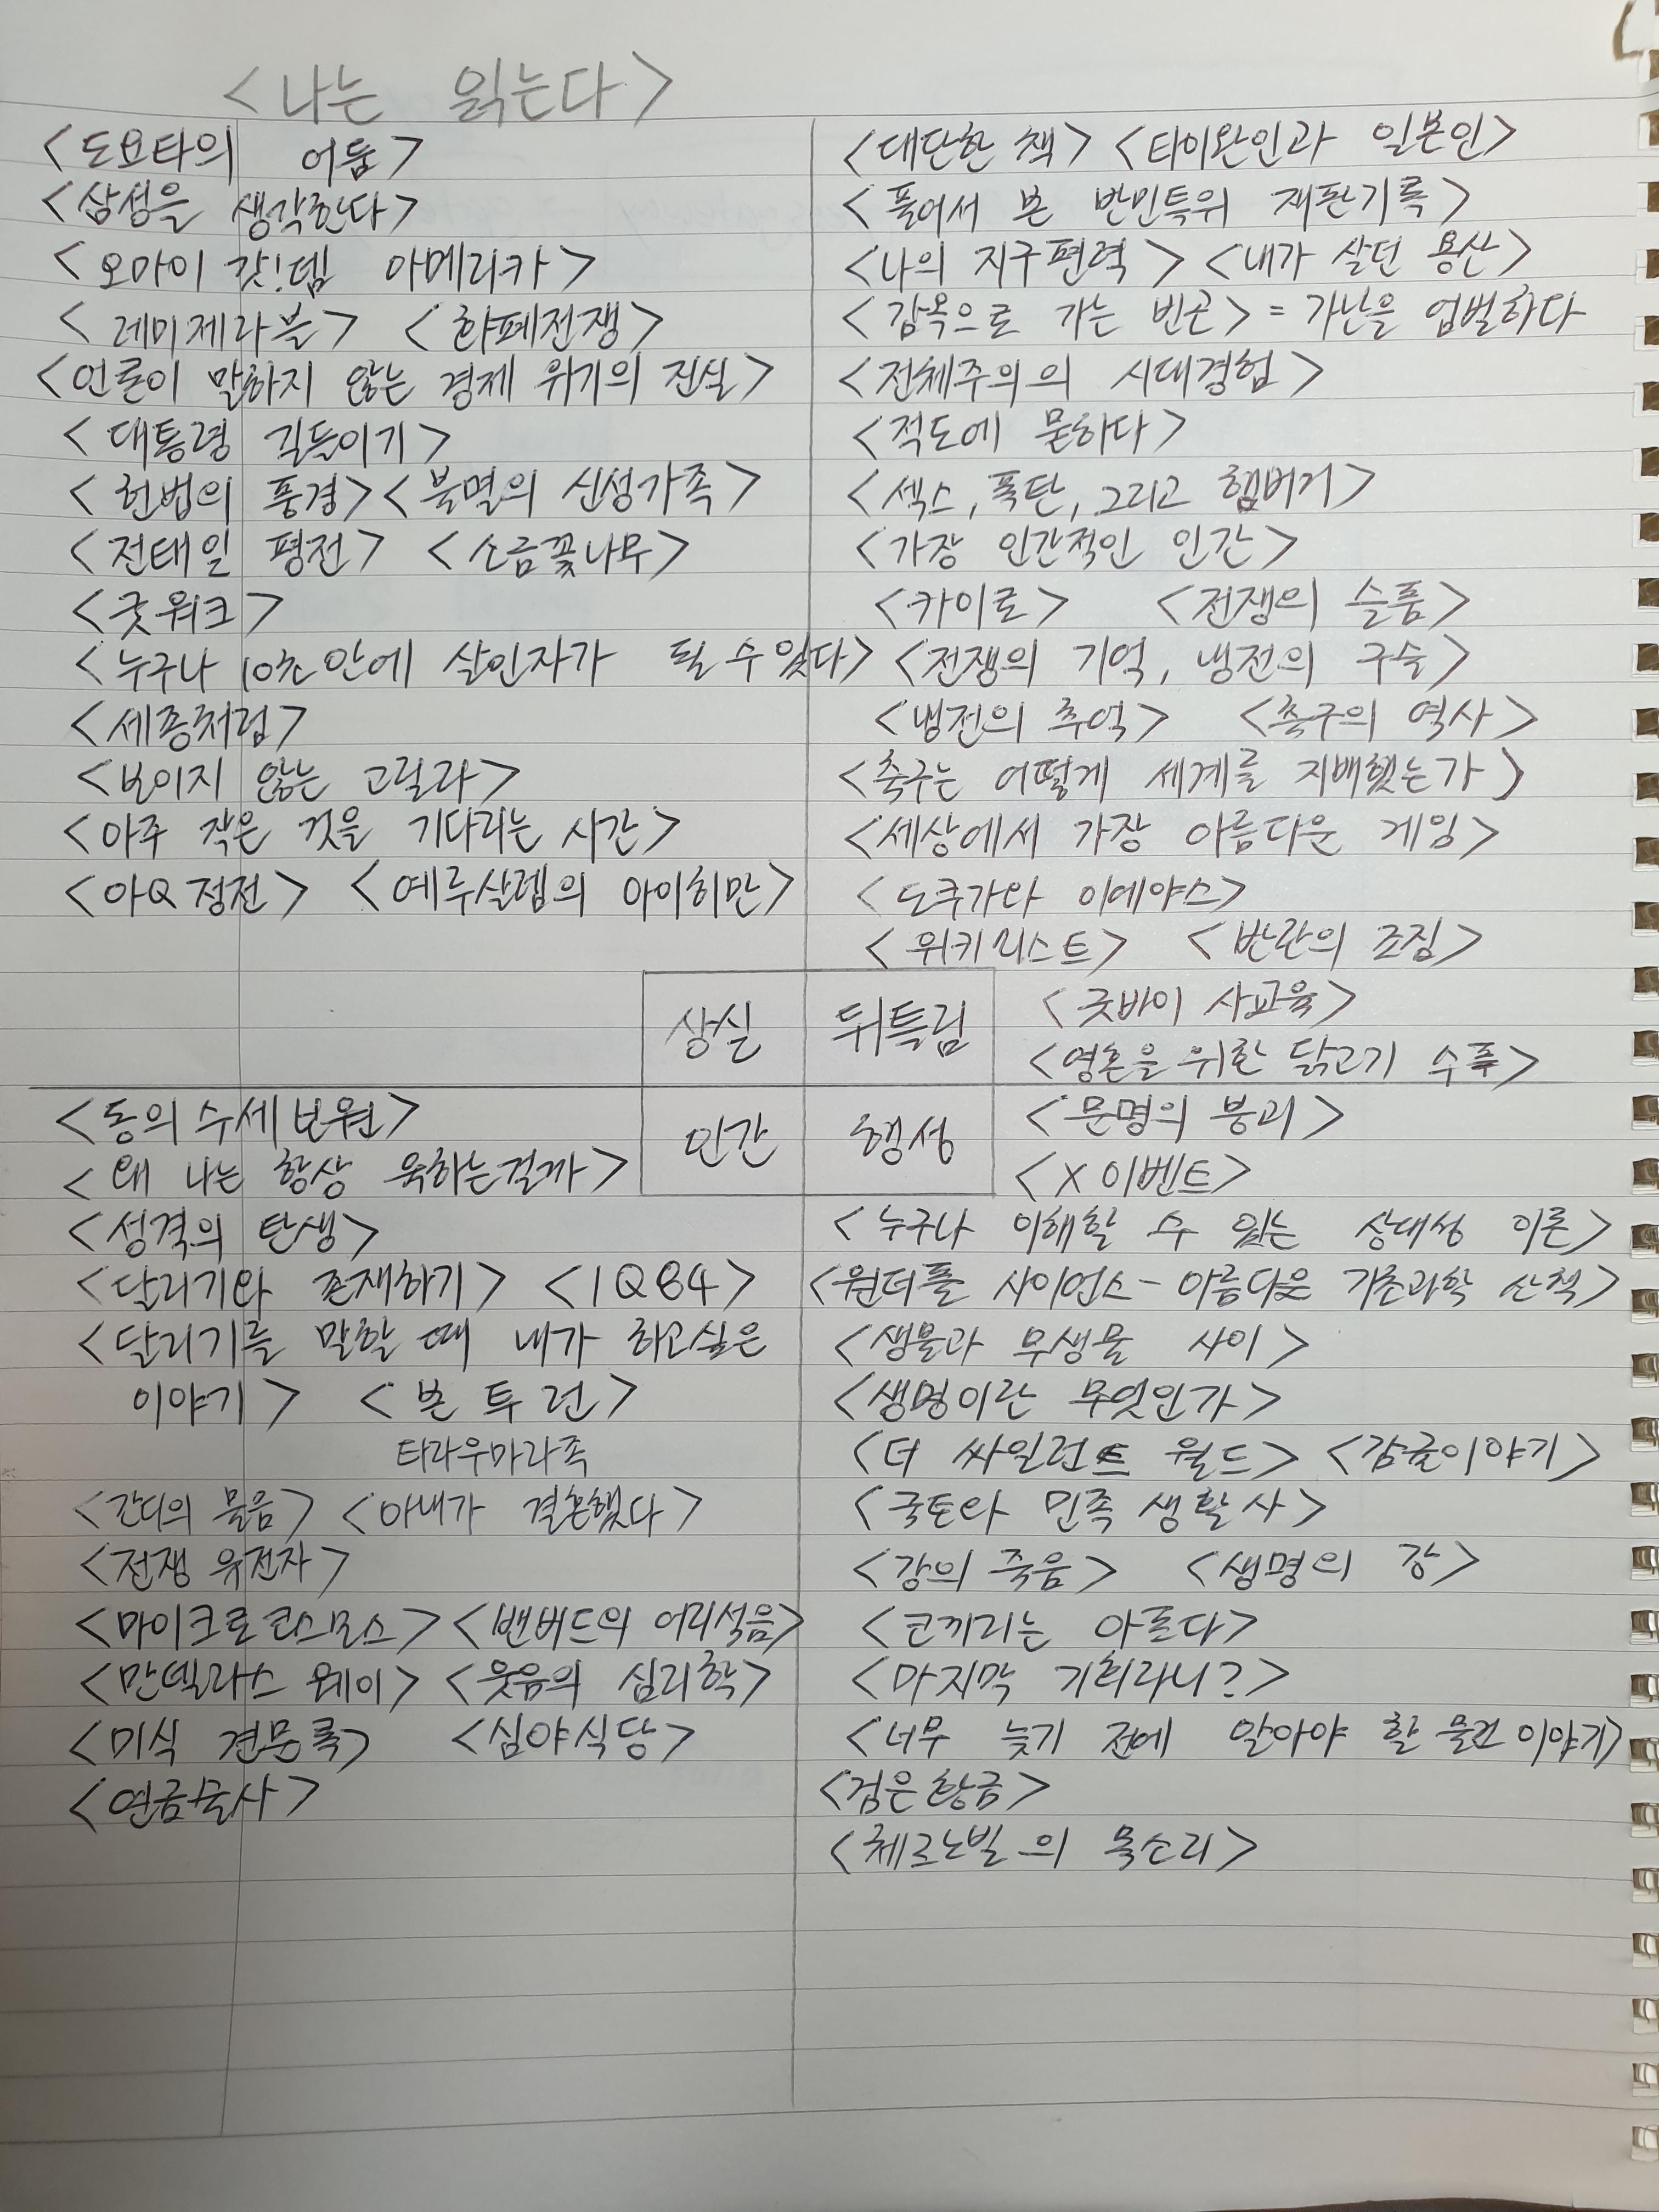 <나는 읽는다>
<도요타의 어둠>
<삼성을 생각한다>
<오마이 갓!뎀 아메리카>
<레미제라블> <화폐전쟁>
<언론이 말하지 않는 경제 위기의 진실>
<대통령 길들이기>
<헌법의 풍경> <불멸의 신성가족>
<전태일 평전> <소금꽃나무>
<굿워크>
<누구나 10초 안에 살인자가 될 수 있다>
<세종처럼>
<보이지 않는 고릴라>
<아주 작은 것을 기다리는 시간>
<아Q 정전> <예루살렘의 아이히만>
상실
<대단한 책> <타이완인과 일본인>
<풀어서 본 반민특위 재판기록>
<나의 지구편력> <내가 살던 용산>
<감옥으로 가는 빈곤> = 가난을 엄벌하다
<전체주의의 시대경험>
<적도에 묻하다>
<섹스, 폭탄, 그리고 햄버거>
<가장 인간적인 인간>
<카이로> <전쟁의 슬픔>
<전쟁의 기억, 냉전의 구술>
<냉전의 추억> <축구의 역사>
<축구는 어떻게 세계를 지배했는가>
<세상에서 가장 아름다운 게임>
<도쿠가와 이에야스>
<위키리스트> <반란의 조짐>
뒤틀림
<굿바이 사교육>
<영혼을 위한 닭고기 수프>
인간
<동의수세보원>
<왜 나는 항상 욱하는걸까>
<성격의 탄생>
<달리기와 존재하기> <1Q84>
<달리기를 말할 때 내가 하고싶은
이야기> <본 투 런>
타라우마라족
<간디의 물음> <아내가 결혼했다>
<전쟁 유전자>
<마이크로코스모스> <밴버드의 어리석음>
<만델라스 웨이> <웃음의 심리학>
<미식 견문록> <심야식당>
<연금술사>
행성
<문명의 붕괴>
<X 이벤트>
<누구나 이해할 수 있는 상대성 이론>
<원더풀 사이언스 - 아름다운 기초과학 산책>
<생물과 무생물 사이>
<생명이란 무엇인가>
<더 싸일런트 월드> <감귤이야기>
<국토와 민족 생활사>
<강의 죽음> <생명의 강>
<코끼리는 아프다>
<마지막 기회라니?>
<너무 늦기 전에 알아야 할 물건 이야기>
<검은 황금>
<체르노빌의 목소리>